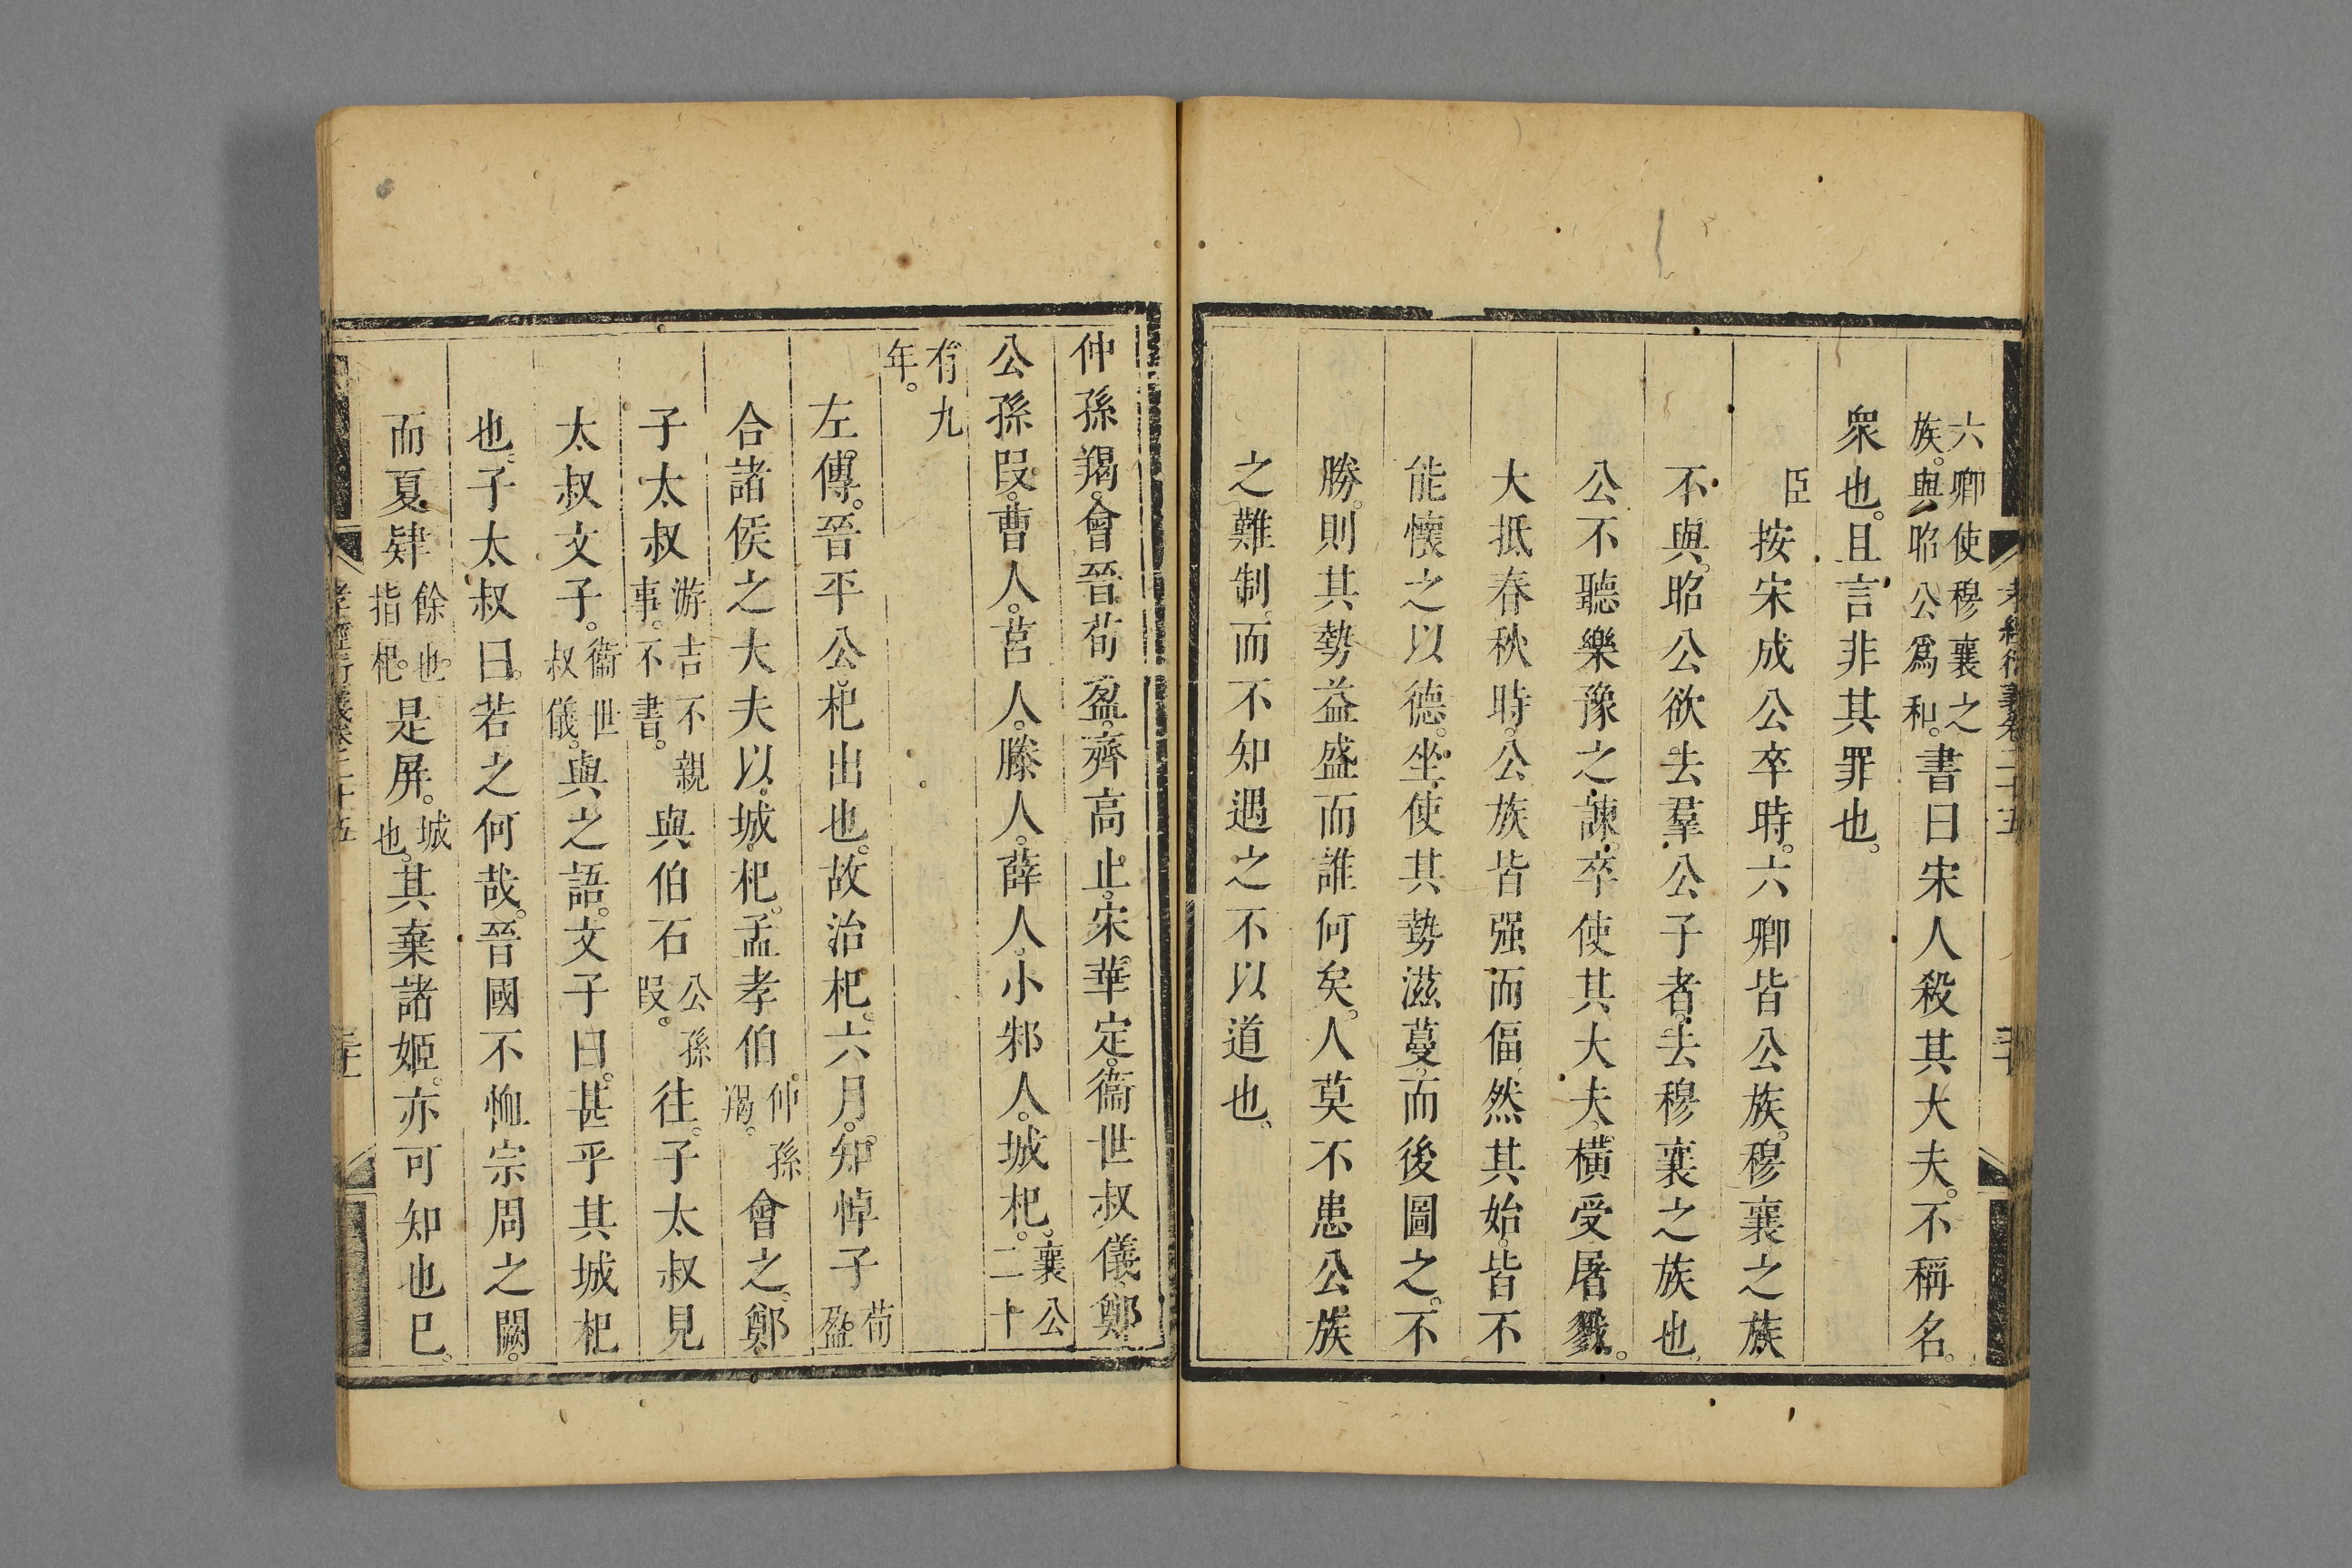 六卿使穆襄之
族。與昭公爲和。書曰宋人殺其大夫。不稱名。
衆也。且言非其罪也。
臣按宋成公卒時。六卿皆公族。穆襄之族
不與。昭公欲去羣公子者。去穆襄之族也。
公不聽樂豫之諫。卒使其大夫。橫受屠戮。
大抵春秋時。公族皆强而偪然其始。皆不
能懷之以德。坐使其勢滋蔓。而後圖之。不
勝。則其勢益盛而誰何矣。人莫不患公族
之難制。而不知遇之不以道也。
仲孫羯。會晉荀盈。齊高止。宋華定。衞世叔儀。鄭
公孫段。曹人。莒人。滕人。薛人。小邾人。城杞。襄公二十
有九年。
左傳。晉平公。杞出也。故治杞。六月。知悼子荀盈
合諸侯之大夫以城杞。孟孝伯仲孫羯。會之。鄭
子太叔游吉不親事。不書。與伯石公孫段。往。子太叔見
太叔文子。衞世叔儀。與之語。文子曰。甚乎其城杞
也。子太叔曰。若之何哉。晉國不恤宗周之闕。
而夏肄餘也。指杞。是屏。城也。其棄諸姬。亦可知也已。